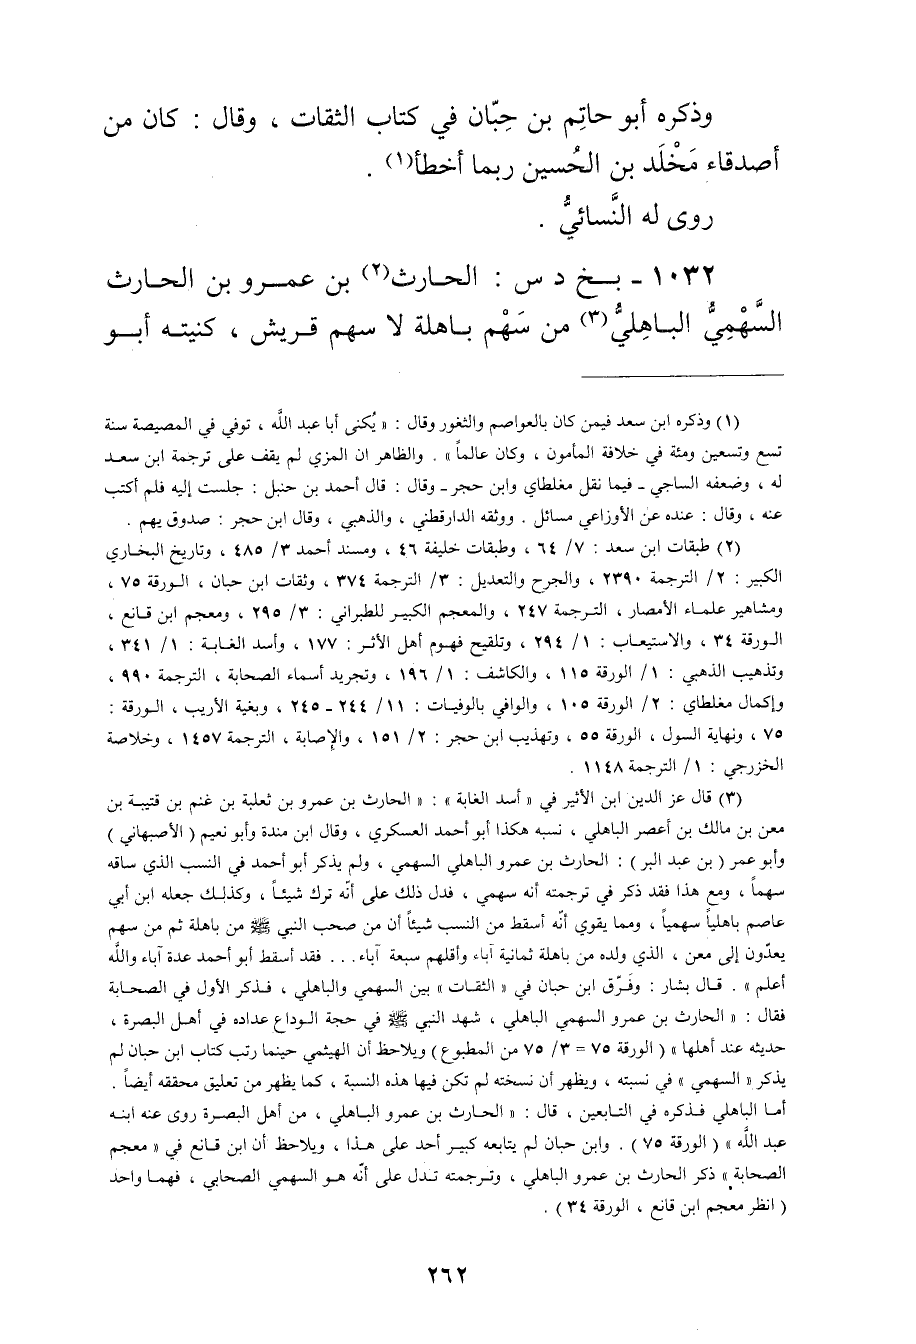 وذكره أبو حاتِم بن حِبّان في كتاب الثقات ، وقال : كان من
أصدقاء مَخْلَد بن الحُسين ربما أخطأ(١) .
روى له النَّسائيُّ .
١٠٣٢ ـ بـخ د س : الحـارث(٢) بن عمـرو بن الحـارث
السَّهْمِيُّ البـاهِليُّ(٣) من سَهْم بـاهلة لا سهم قـريش ، كنيتـه أبـو
(١) وذكره ابن سعد فيمن كان بالعواصم والثغور وقال : « يُكنى أبا عبد اللَّه ، توفي في المصيصة سنة
تسع وتسعين ومئة في خلافة المأمون ، وكان عالماً » . والظاهر ان المزي لم يقف على ترجمة ابن سعـد
له ، وضعفه الساجي ـ فيما نقل مغلطاي وابن حجر ـ وقال : قال أحمد بن حنبل : جلست إليه فلم أكتب
عنه ، وقال : عنده عن الأوزاعي مسائل . ووثقه الدارقطني ، والذهبي ، وقال ابن حجر : صدوق يهم .
(٢) طبقات ابن سعد : ٧/ ٦٤ ، وطبقات خليفة ٤٦ ، ومسند أحمد ٣/ ٤٨٥ ، وتاريخ البخاري
الكبير : ٢/ الترجمة ٢٣٩٠ ، والجرح والتعديل : ٣/ الترجمة ٣٧٤ ، وثقات ابن حبان ، الـورقة ٧٥ ،
ومشاهير علمـاء الأمصار ، التـرجمة ٢٤٧ ، والمعجم الكبيـر للطبراني : ٣/ ٢٩٥ ، ومعجم ابن قـانع ،
الـورقة ٣٤ ، والاستيعـاب : ١/ ٢٩٤ ، وتلقيح فهـوم أهل الأثـر : ١٧٧ ، وأسد الغـابـة : ١/ ٣٤١ ،
وتذهيب الذهبي : ١/ الورقة ١١٥ ، والكاشف : ١/ ١٩٦ ، وتجريد أسماء الصحابة ، الترجمة ٩٩٠ ،
وإكمال مغلطاي : ٢/ الورقة ١٠٥ ، والوافي بالوفيـات : ١١/ ٢٤٤ ـ ٢٤٥ ، وبغية الأريب ، الـورقة :
٧٥ ، ونهاية السول ، الورقة ٥٥ ، وتهذيب ابن حجر : ٢/ ١٥١ ، والإصابة ، الترجمة ١٤٥٧ ، وخلاصة
الخزرجي : ١/ الترجمة ١١٤٨ .
(٣) قال عز الدين ابن الأثير في « أسد الغابة » : « الحارث بن عمرو بن ثعلبة بن غنم بن قتيبة بن
معن بن مالك بن أعصر الباهلي ، نسبه هكذا أبو أحمد العسكري ، وقال ابن مندة وأبو نعيم ( الأصبهاني )
وأبو عمر ( بن عبد البر ) : الحارث بن عمرو الباهلي السهمي ، ولم يذكر أبو أحمد في النسب الذي ساقه
سهماً ، ومع هذا فقد ذكر في ترجمته أنه سهمي ، فدل ذلك على أنّه ترك شيئـاً ، وكذلـك جعله ابن أبي
عاصم باهلياً سهمياً ، ومما يقوي أنّه أسقط من النسب شيئاً أن من صحب النبي ﷺ من باهلة ثم من سهم
يعدّون إلى معن ، الذي ولده من باهلة ثمانية آباء وأقلهم سبعة آباء... فقد أسقط أبو أحمد عدة آباء واللَّه
أعلم » . قـال بشار : وفَـرّق ابن حبان في « الثقـات » بين السهمي والباهلي ، فـذكر الأول في الصحـابة
فقال : « الحارث بن عمرو السهمي الباهلي ، شهد النبي ﷺ في حجة الـوداع عداده في أهـل البصرة ،
حديثه عند أهلها » ( الورقة ٧٥ = ٣/ ٧٥ من المطبوع) ويلاحظ أن الهيثمي حينما رتب كتاب ابن حبان لم
يذكر « السهمي » في نسبته ، ويظهر أن نسخته لم تكن فيها هذه النسبة ، كما يظهر من تعليق محققه أيضاً .
أمـا الباهلي فـذكره في التـابعين ، قال : « الحـارث بن عمرو البـاهلي ، من أهل البصـرة روى عنه ابنـه
عبد اللَّه » ( الورقة ٧٥ ) . وابن حبان لم يتابعه كبيـر أحد على هـذا ، ويلاحظ أن ابن قـانع في « معجم
الصحابة » ذكر الحارث بن عمرو الباهلي ، وتـرجمته تـدل على أنّه هـو السهمي الصحابي ، فهمـا واحد
( انظر معجم ابن قانع ، الورقة ٣٤ ) .
٢٦٢